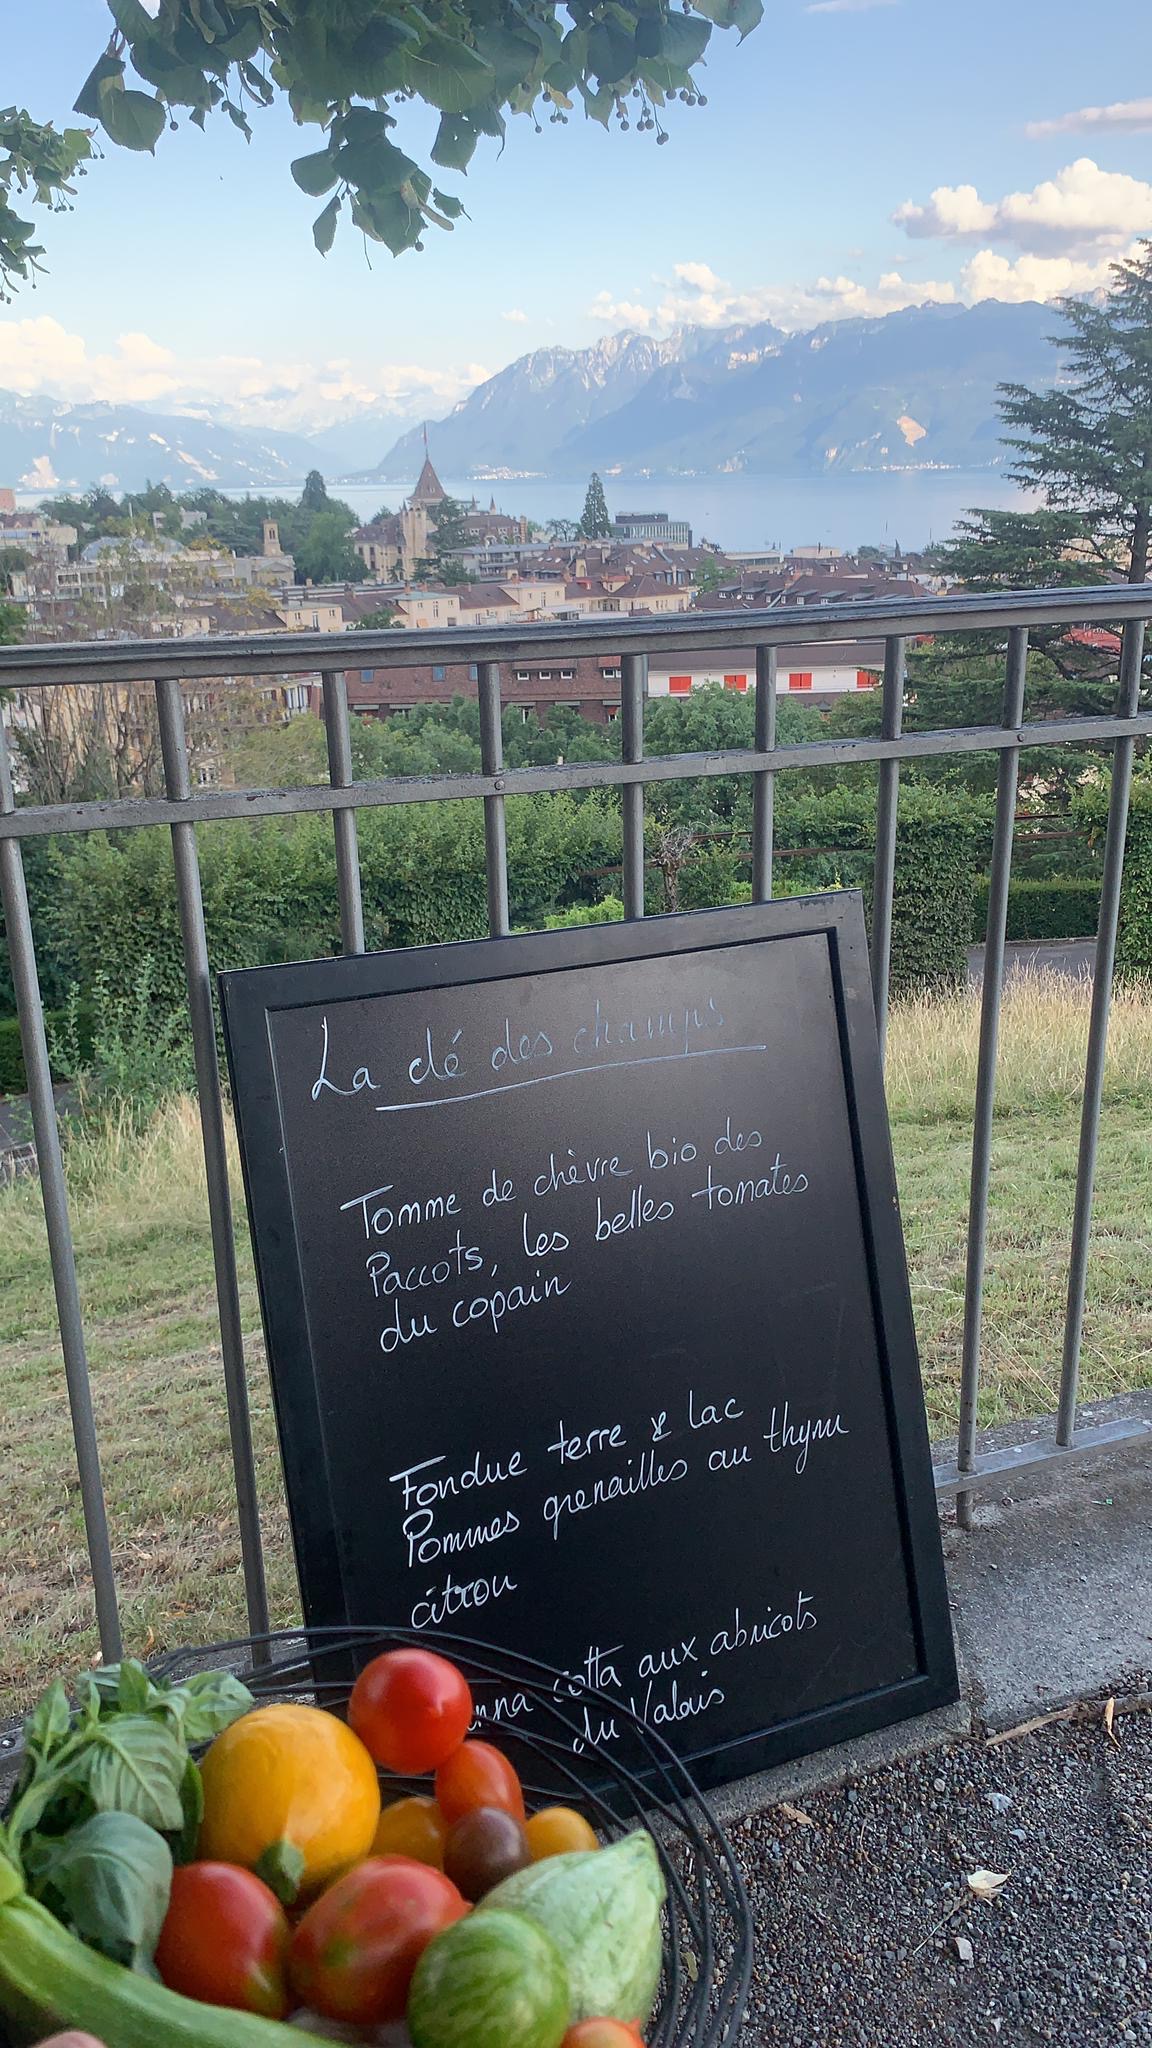 La clé des champs
Tomme de chèvre bio des
Paccots, les belles tomates
du copain
Fondue terre & lac
Pommes grenailles au thym
citron
cotta aux abricots
du Valais